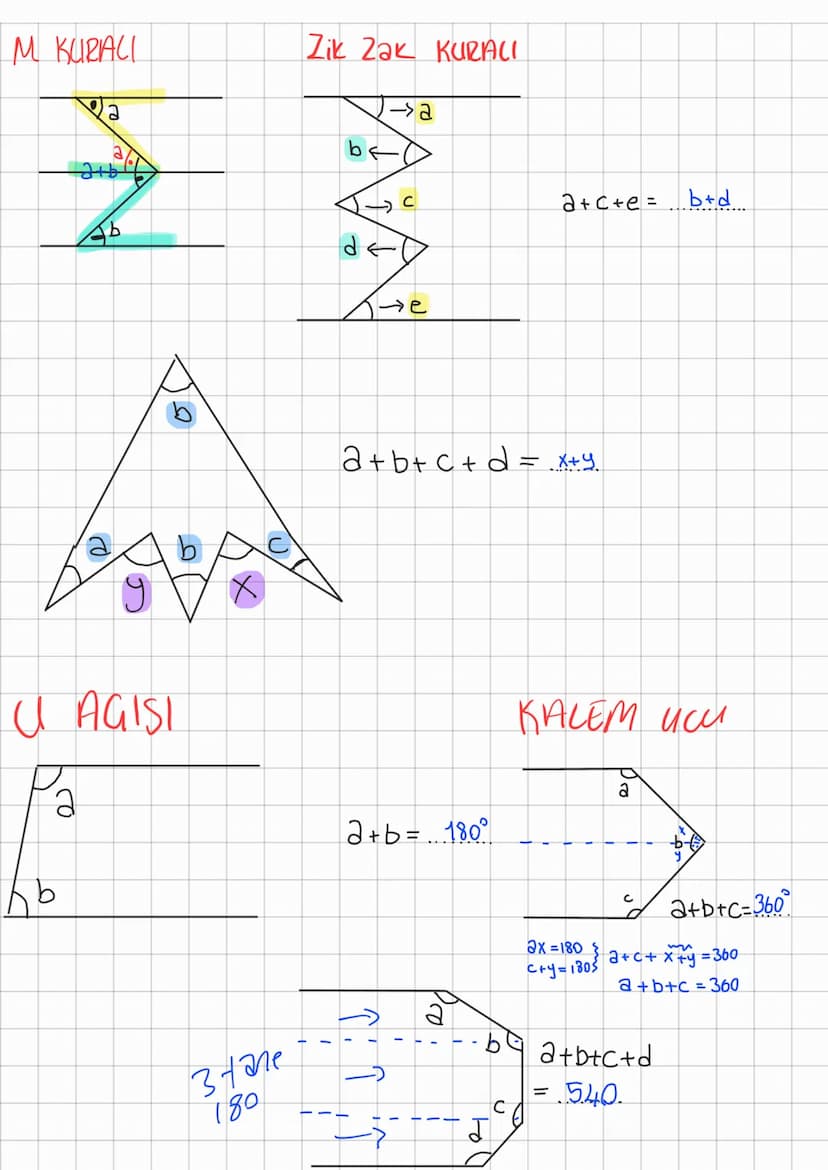 M KURALI
a
a
a+b
b
Zik Zak KURALI
→ a
b ←
→ c
d ←
→ e
a+c+e = ...b+d...
b
a b c
y x
a+b+c+d = .x+y.
U AÇISI
a
b
a+b = ...180°...
KALEM UCU
a
x
b
y
c
a+b+c=360°
ax=180 } a+c+x+y=360
c+y=180
a+b+c=360
3 tane
180
a
b
c
d
a+b+c+d
= .540.